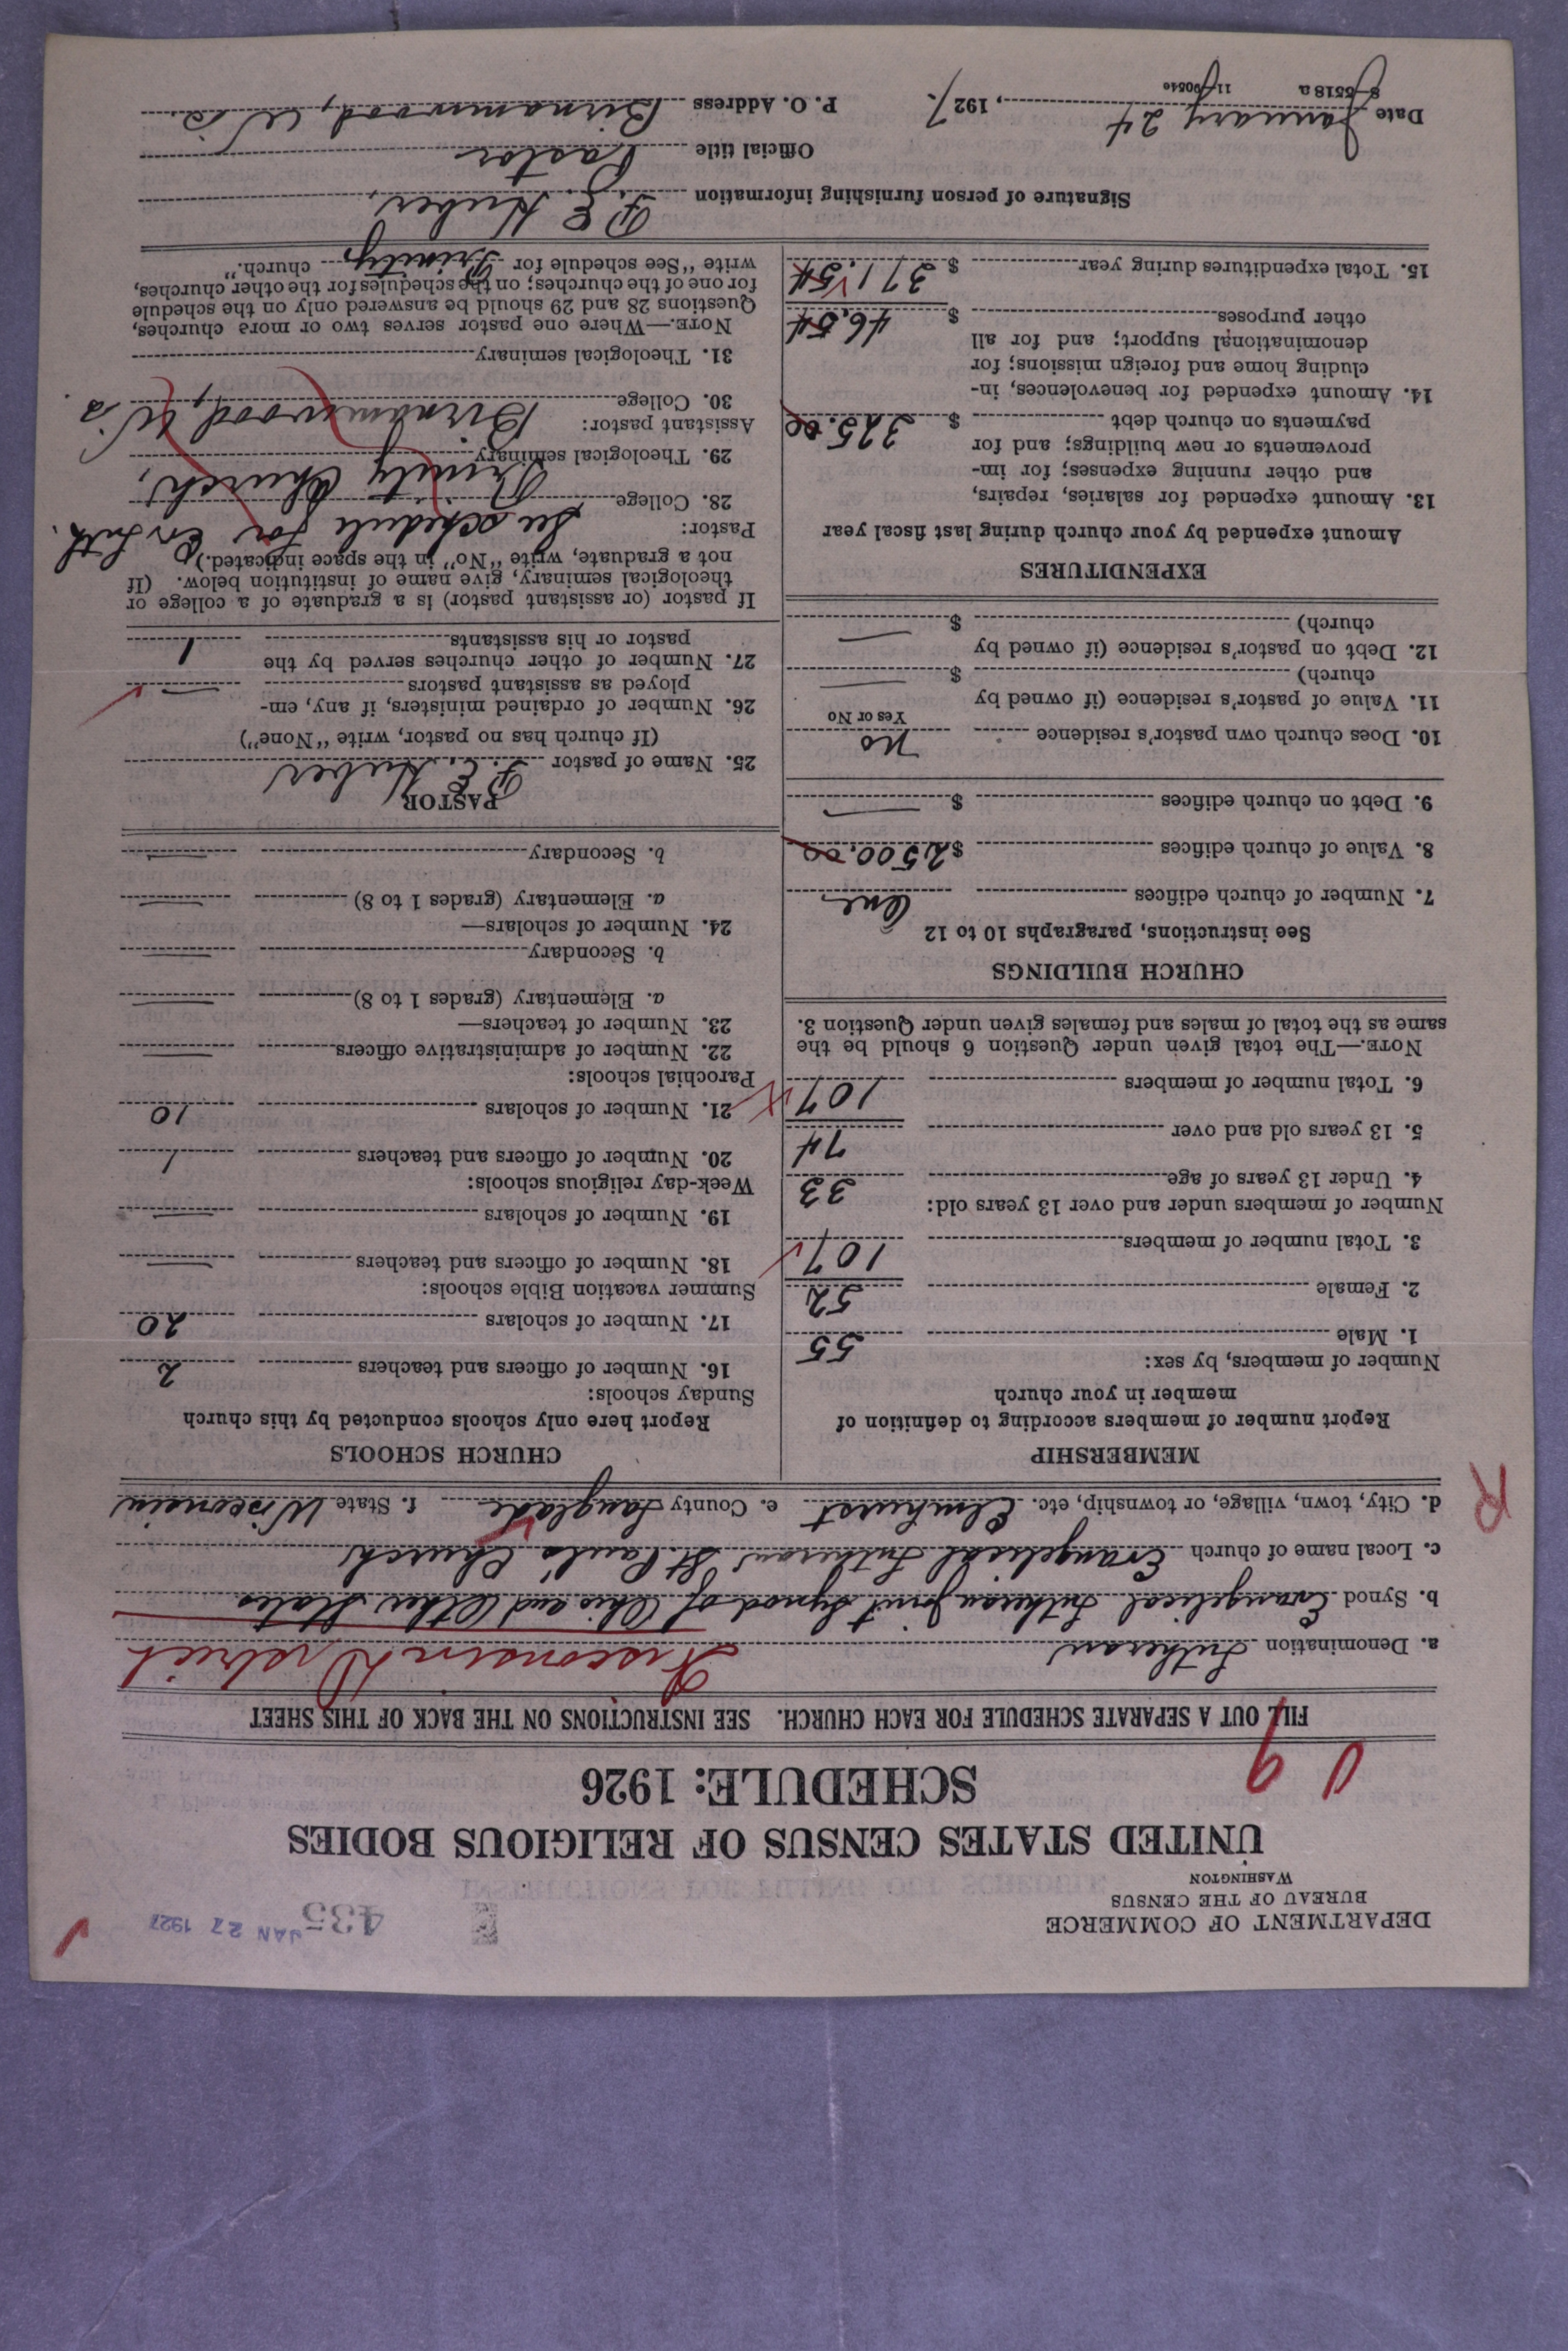 DEPARTMENT OF COMMERCE
BUREAU OF THE CENSUS
WASHINGTON
435
JAN 27 1927
UNITED STATES CENSUS OF RELIGIOUS BODIES
SCHEDULE: 1926
FILL OUT A SEPARATE SCHEDULE FOR EACH CHURCH. SEE INSTRUCTIONS ON THE BACK OF THIS SHEET
a. Denomination Lutheran Wisconsin District
b. Synod Evangelical Lutheran Joint Synod of Ohio and Other States
c. Local name of church Evangelical Lutheran St. Paul's Church
d. City, town, village, or township, etc. Elmhurst e. County Langlade f. State Wisconsin
R
MEMBERSHIP
Report number of members according to definition of
member in your church
Number of members, by sex:
1. Male 55
2. Female 52
3. Total number of members 107
Number of members under and over 13 years old:
4. Under 13 years of age 33
5. 13 years old and over 74
6. Total number of members 107
NOTE.—The total given under Question 6 should be the
same as the total of males and females given under Question 3.
CHURCH BUILDINGS
See instructions, paragraphs 10 to 12
7. Number of church edifices One
8. Value of church edifices $2500.00
9. Debt on church edifices $ —
10. Does church own pastor's residence No
Yes or No
11. Value of pastor's residence (if owned by
church) $ —
12. Debt on pastor's residence (if owned by
church) $ —
EXPENDITURES
Amount expended by your church during last fiscal year
13. Amount expended for salaries, repairs,
and other running expenses; for im-
provements or new buildings; and for
payments on church debt $ 325.00
14. Amount expended for benevolences, in-
cluding home and foreign missions; for
denominational support; and for all
other purposes $ 46.54
15. Total expenditures during year $ 371.54
CHURCH SCHOOLS
Report here only schools conducted by this church
Sunday schools:
16. Number of officers and teachers 2
17. Number of scholars 20
Summer vacation Bible schools:
18. Number of officers and teachers —
19. Number of scholars —
Week-day religious schools:
20. Number of officers and teachers 1
21. Number of scholars 10
Parochial schools:
22. Number of administrative officers —
23. Number of teachers—
a. Elementary (grades 1 to 8) —
b. Secondary —
24. Number of scholars—
a. Elementary (grades 1 to 8) —
b. Secondary —
PASTOR
25. Name of pastor P. E. Huber
(If church has no pastor, write "None")
26. Number of ordained ministers, if any, em-
ployed as assistant pastors —
27. Number of other churches served by the
pastor or his assistants 1
If pastor (or assistant pastor) is a graduate of a college or
theological seminary, give name of institution below. (If
not a graduate, write "No" in the space indicated.)
Pastor: See schedule for Ev. Luth.
28. College Trinity Church,
29. Theological seminary
Assistant pastor: Birnamwood, Wis.
30. College
31. Theological seminary
NOTE.—Where one pastor serves two or more churches,
Questions 28 and 29 should be answered only on the schedule
for one of the churches; on the schedules for the other churches,
write "See schedule for Trinity church."
Signature of person furnishing information P. E. Huber
Official title Pastor
Date January 24, 1927. P. O. Address Birnamwood, Wis.
8-5518a